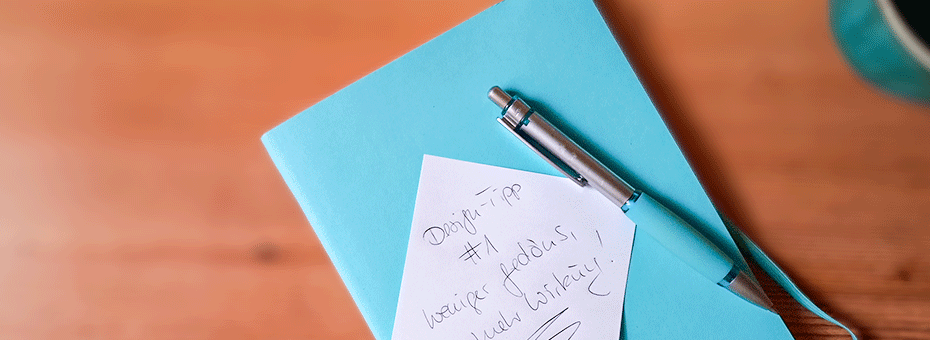 Design-Tipp
#1
weniger gedöns,
mehr Wirkung!